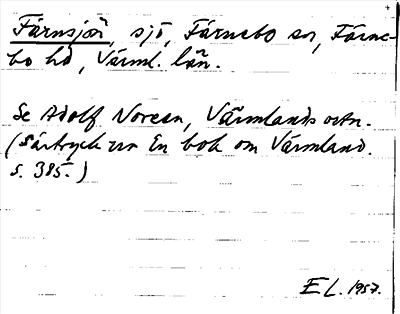 Färnsjön, sjö, Färnebo sn, Färne-
bo hd, Värml. län.
Se Adolf Noreen, Värmlands ortn.
(Särtryck ur En bok om Värmland.
s. 385.)
E L. 1957.